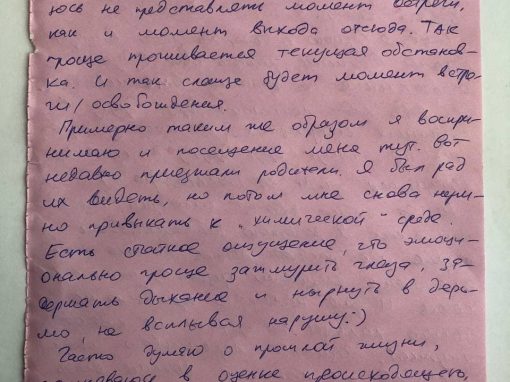 юсь не представлять момент встречи,
как и момент выхода отсюда. Так
проще проживается текущая обстанов-
ка. И так слаще будет момент встре-
чи/освобождения.
Примерно таким же образом я воспри-
нимаю и посещение меня тут. Вот
недавно приезжали родители. Я был рад
их видеть, но потом мне снова нужно
привыкать к "химической" среде.
Есть стойкое ощущение, что эмоци-
онально проще зажмурить глаза, за-
держать дыхание и нырнуть в дерь-
мо, не всплывая наружу:)
Часто думаю о прошлой жизни,
в оценке происходящего,